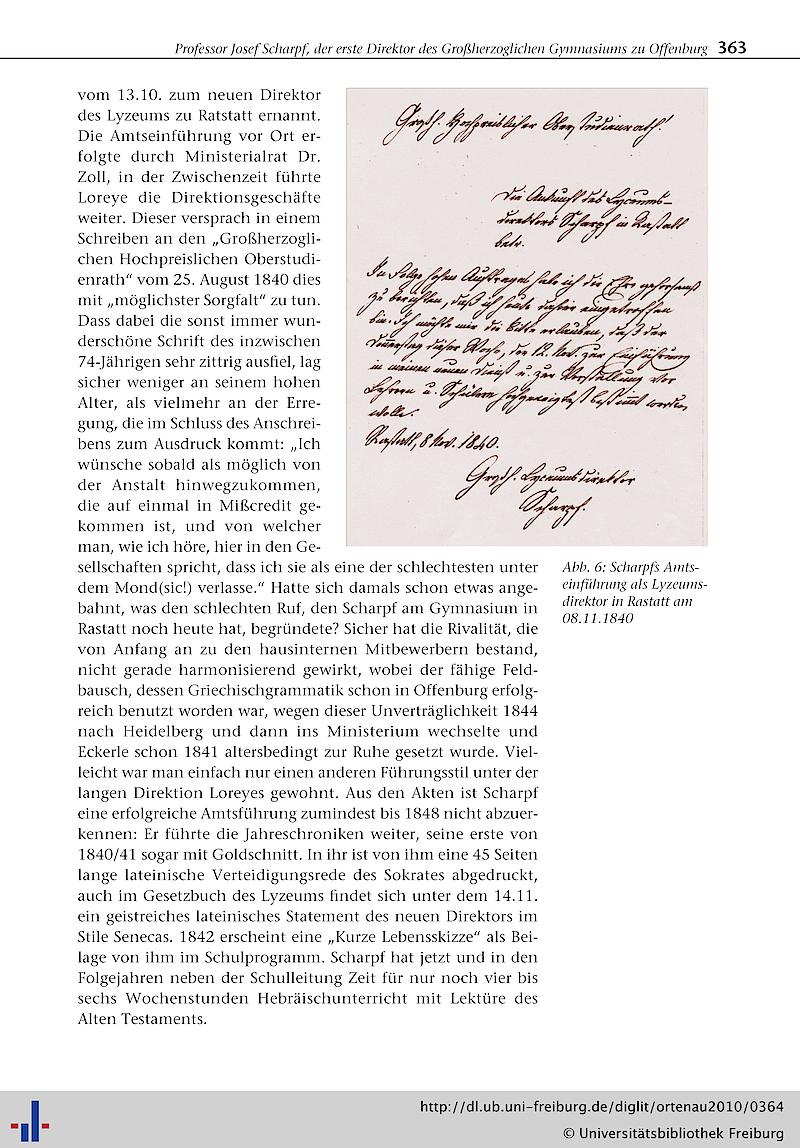 Professor Josef Scharpf, der erste Direktor des Großherzoglichen Gymnasiums zu Offenburg 363
vom 13.10. zum neuen Direktor
des Lyzeums zu Ratstatt ernannt.
Die Amtseinführung vor Ort er-
folgte durch Ministerialrat Dr.
Zoll, in der Zwischenzeit führte
Loreye die Direktionsgeschäfte
weiter. Dieser versprach in einem
Schreiben an den „Großherzogli-
chen Hochpreislichen Oberstudi-
enrath“ vom 25. August 1840 dies
mit „möglichster Sorgfalt“ zu tun.
Dass dabei die sonst immer wun-
derschöne Schrift des inzwischen
74-Jährigen sehr zittrig ausfiel, lag
sicher weniger an seinem hohen
Alter, als vielmehr an der Erre-
gung, die im Schluss des Anschrei-
bens zum Ausdruck kommt: „Ich
wünsche sobald als möglich von
der Anstalt hinwegzukommen,
die auf einmal in Mißcredit ge-
kommen ist, und von welcher
man, wie ich höre, hier in den Ge-
sellschaften spricht, dass ich sie als eine der schlechtesten unter
dem Mond(sic!) verlasse.“ Hatte sich damals schon etwas ange-
bahnt, was den schlechten Ruf, den Scharpf am Gymnasium in
Rastatt noch heute hat, begründete? Sicher hat die Rivalität, die
von Anfang an zu den hausinternen Mitbewerbern bestand,
nicht gerade harmonisierend gewirkt, wobei der fähige Feld-
bausch, dessen Griechischgrammatik schon in Offenburg erfolg-
reich benutzt worden war, wegen dieser Unverträglichkeit 1844
nach Heidelberg und dann ins Ministerium wechselte und
Eckerle schon 1841 altersbedingt zur Ruhe gesetzt wurde. Viel-
leicht war man einfach nur einen anderen Führungsstil unter der
langen Direktion Loreyes gewohnt. Aus den Akten ist Scharpf
eine erfolgreiche Amtsführung zumindest bis 1848 nicht abzuer-
kennen: Er führte die Jahreschroniken weiter, seine erste von
1840/41 sogar mit Goldschnitt. In ihr ist von ihm eine 45 Seiten
lange lateinische Verteidigungsrede des Sokrates abgedruckt,
auch im Gesetzbuch des Lyzeums findet sich unter dem 14.11.
ein geistreiches lateinisches Statement des neuen Direktors im
Stile Senecas. 1842 erscheint eine „Kurze Lebensskizze“ als Bei-
lage von ihm im Schulprogramm. Scharpf hat jetzt und in den
Folgejahren neben der Schulleitung Zeit für nur noch vier bis
sechs Wochenstunden Hebräischunterricht mit Lektüre des
Alten Testaments.
Grzgl. Hochpreislicher Oberstudienrath!
Die Ankunft des Lyceums-
direktors Scharpf in Rastatt
betr.
In Folge hohen Auftrages habe ich die Ehre gehorsamst
zu berichten, daß ich heute dahier eingetroffen
bin. Ich möchte mir die Bitte erlauben, daß der
Donnerstag dieser Woche, der 12. Nov. zur Einführung
in meinen neuen Dienst u. zur Vorstellung vor
Lehrern u. Schülern hochgeneigtest bestimmt werden
wolle.
Rastatt, 8 Nov. 1840.
Lyceumsdirektor
Scharpf.
Abb. 6: Scharpfs Amts-
einführung als Lyzeums-
direktor in Rastatt am
08.11.1840
http://dl.ub.uni-freiburg.de/diglit/ortenau2010/0364
© Universitätsbibliothek Freiburg